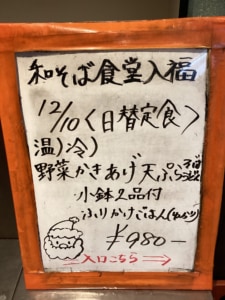 和そば食堂入福
12/10〈日替定食〉
温)冷)
野菜かきあげ天ぷら
小鉢2品付
ふりかけごはん(ゆかり)
¥980-
入口こちら→